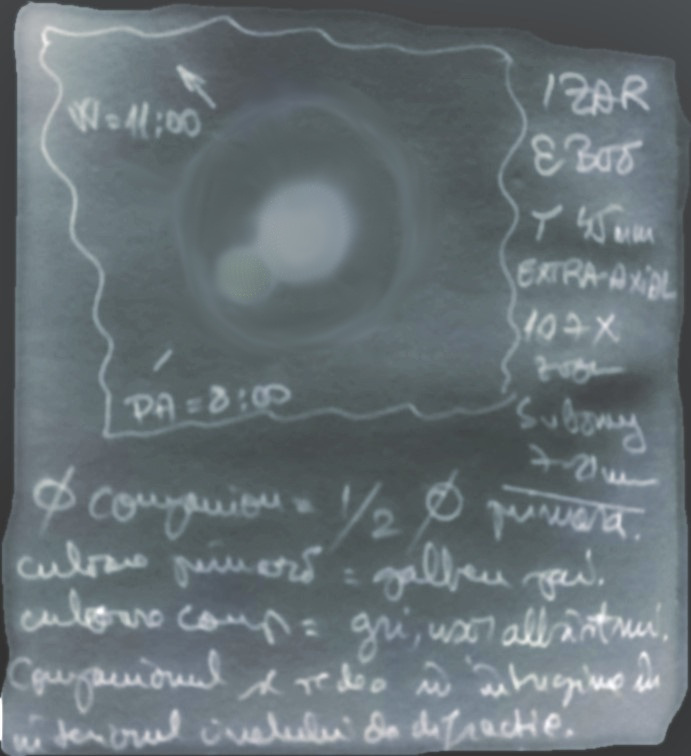 W=11:00
PA = 8:00
IZAR
ε BOO
T 45 mm
EXTRA-AXIAL
107X
zoom
Svbony
7-21mm
Ø companion = 1/2 Ø primară.
culoare primară = galben pai.
culoare comp = gri, ușor albăstrui.
Companionul se vedea în întregime în
interiorul inelului de difracție.